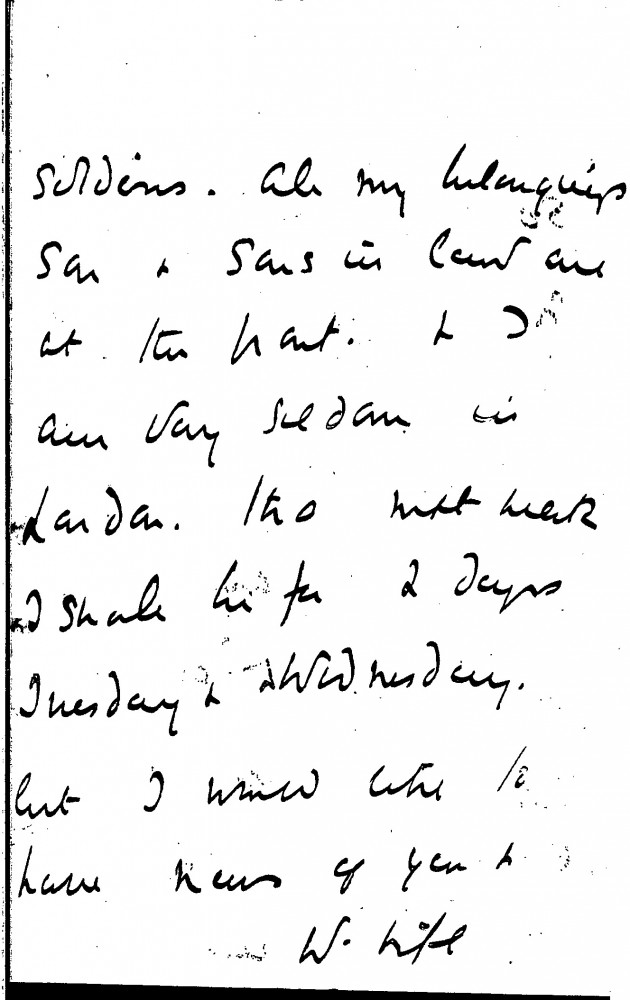 soldiers. all my belongings
son & sons in law are
at the front. & I
am very seldom in
London. tho next week
I shall be for 2 days
Tuesday & Wednesday.
but I would like to
have news of you &
W. Life